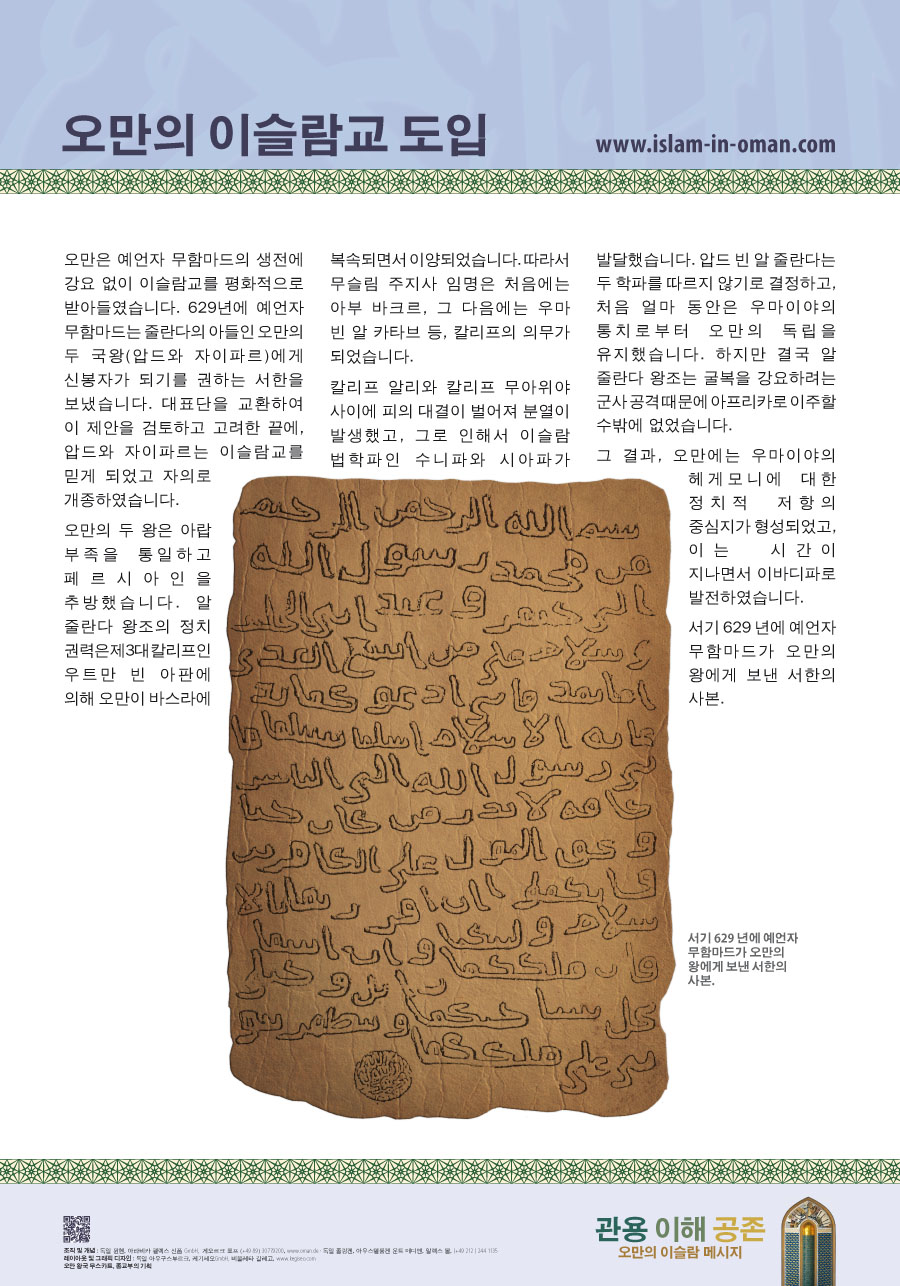 오만의 이슬람교 도입
www.islam-in-oman.com
오만은 예언자 무함마드의 생전에
강요 없이 이슬람교를 평화적으로
받아들였습니다. 629년에 예언자
무함마드는 줄란다의 아들인 오만의
두 국왕(압드와 자이파르)에게
신봉자가 되기를 권하는 서한을
보냈습니다. 대표단을 교환하여
이 제안을 검토하고 고려한 끝에,
압드와 자이파르는 이슬람교를
믿게 되었고 자의로
개종하였습니다.
오만의 두 왕은 아랍
부족을 통일하고
페르시아인을
추방했습니다. 알
줄란다 왕조의 정치
권력은 제3대 칼리프인
우트만 빈 아판에
의해 오만이 바스라에
복속되면서 이양되었습니다. 따라서
무슬림 주지사 임명은 처음에는
아부 바크르, 그 다음에는 우마
빈 알 카타브 등, 칼리프의 의무가
되었습니다.
칼리프 알리와 칼리프 무아위야
사이에 피의 대결이 벌어져 분열이
발생했고, 그로 인해서 이슬람
법학파인 수니파와 시아파가
발달했습니다. 압드 빈 알 줄란다는
두 학파를 따르지 않기로 결정하고,
처음 얼마 동안은 우마이야의
통치로부터 오만의 독립을
유지했습니다. 하지만 결국 알
줄란다 왕조는 굴복을 강요하려는
군사 공격 때문에 아프리카로 이주할
수밖에 없었습니다.
그 결과, 오만에는 우마이야의
헤게모니에 대한
정치적 저항의
중심지가 형성되었고,
이는 시간이
지나면서 이바디파로
발전하였습니다.
서기 629 년에 예언자
무함마드가 오만의
왕에게 보낸 서한의
사본.
بسم الله الرحمن الرحيم
من محمد رسول الله
서기 629 년에 예언자
무함마드가 오만의
왕에게 보낸 서한의
사본.
관용 이해 공존
오만의 이슬람 메시지
조직 및 개념 : 독일 뮌헨,
레이아웃 및 그래픽 디자인 : 독일
오만 왕국 무스카트, 종교부의 기획